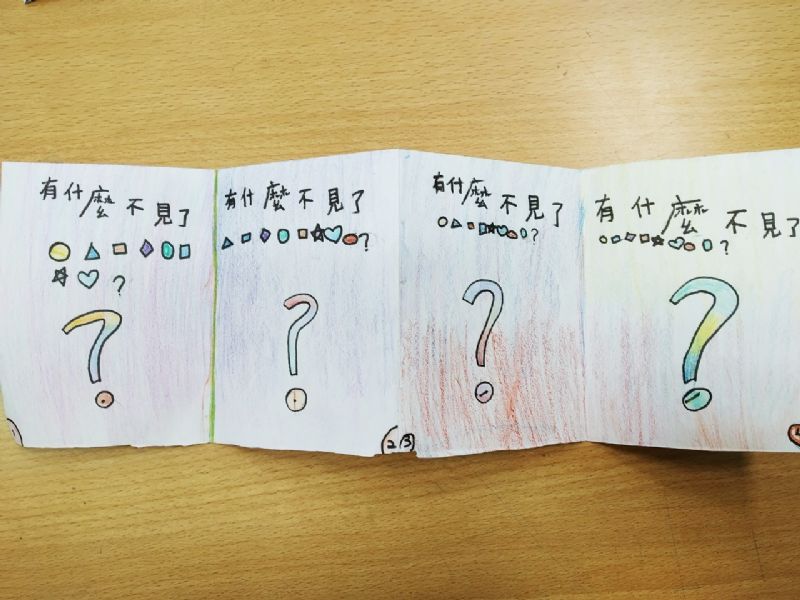 有什麼不見了
?
1
有什麼不見了
?
2
有什麼不見了
?
3
有什麼不見了
?